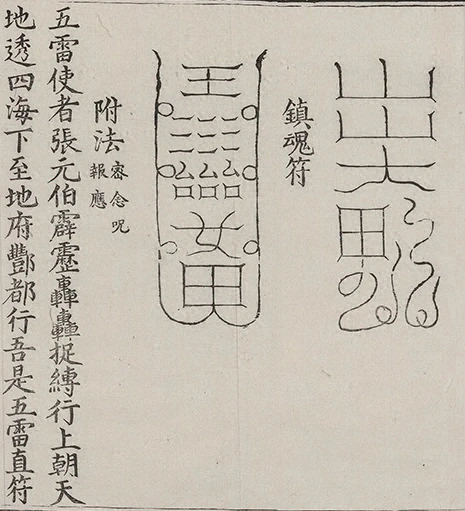 鎮魂符
附法
密念咒
報應
五雷使者張元伯霹靂轟轟捉縛行上朝天
地透四海下至地府酆都行吾是五雷直符